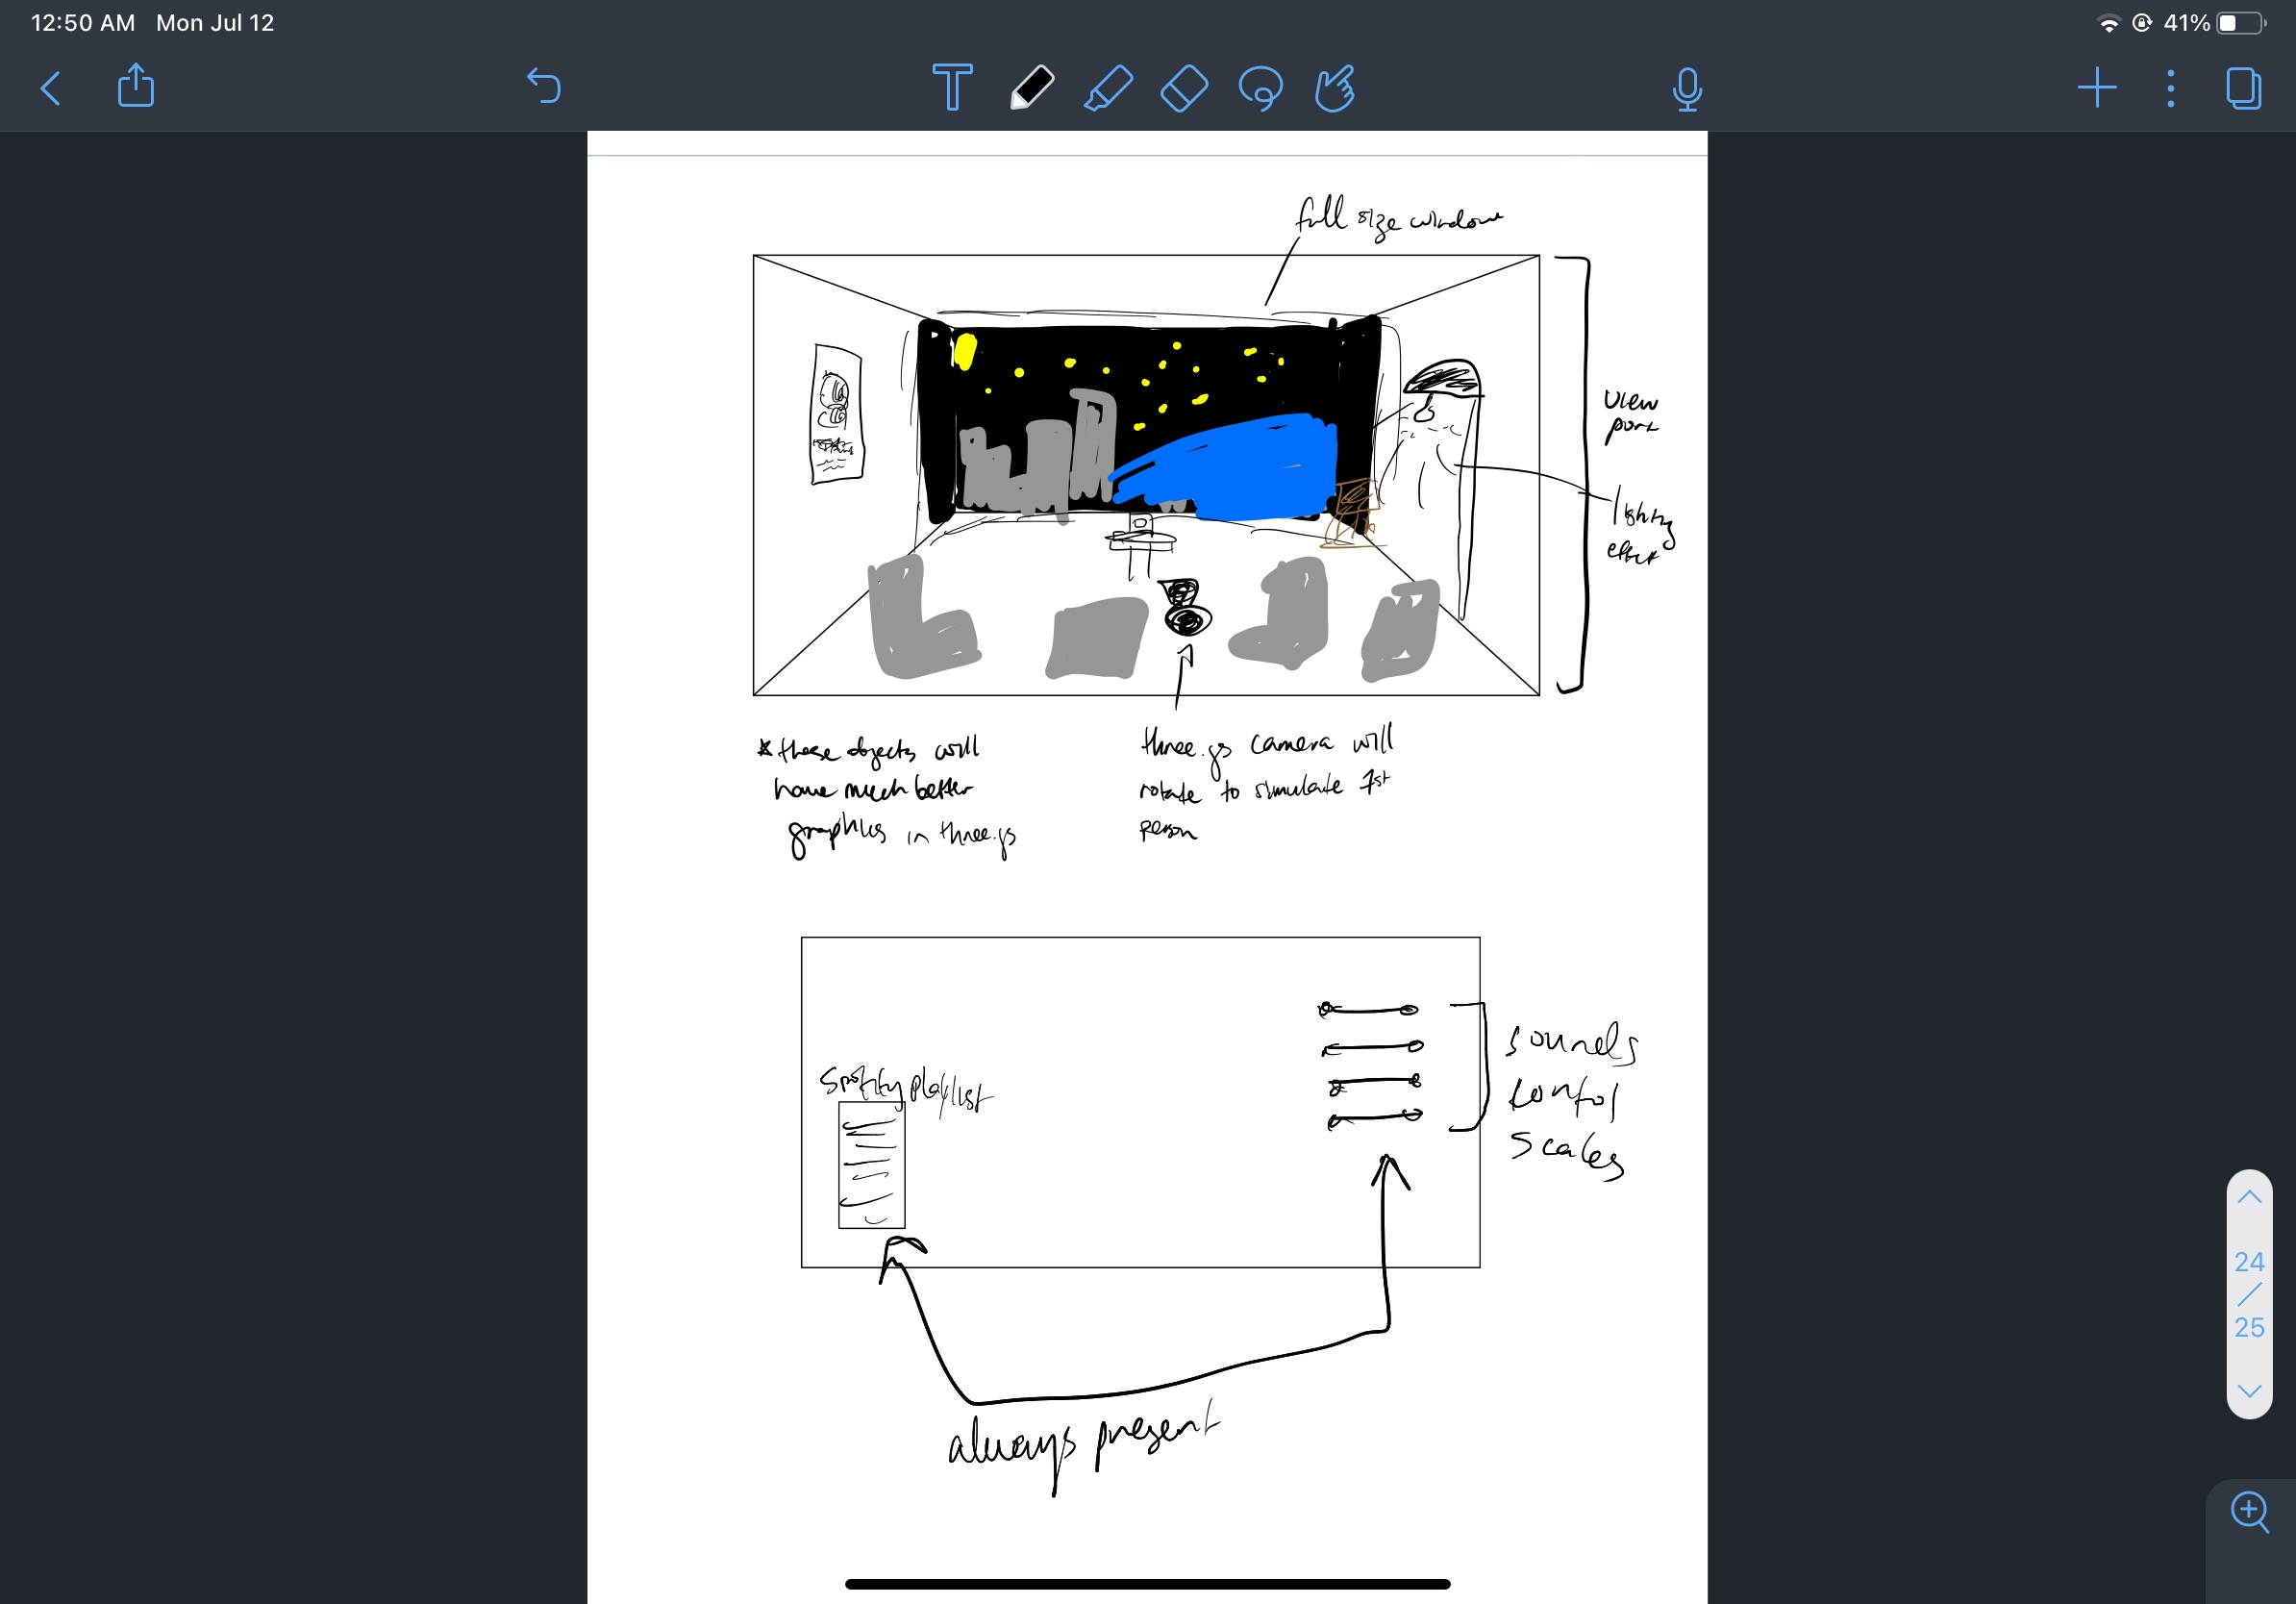 12:50 AM Mon Jul 12
41%
full size window
view
port
lighting
effect
* these objects will
have much better
graphics in three.js
three.js camera will
rotate to simulate 1st
person
Spotify playlist
sounds
control
scales
always present
24
/
25